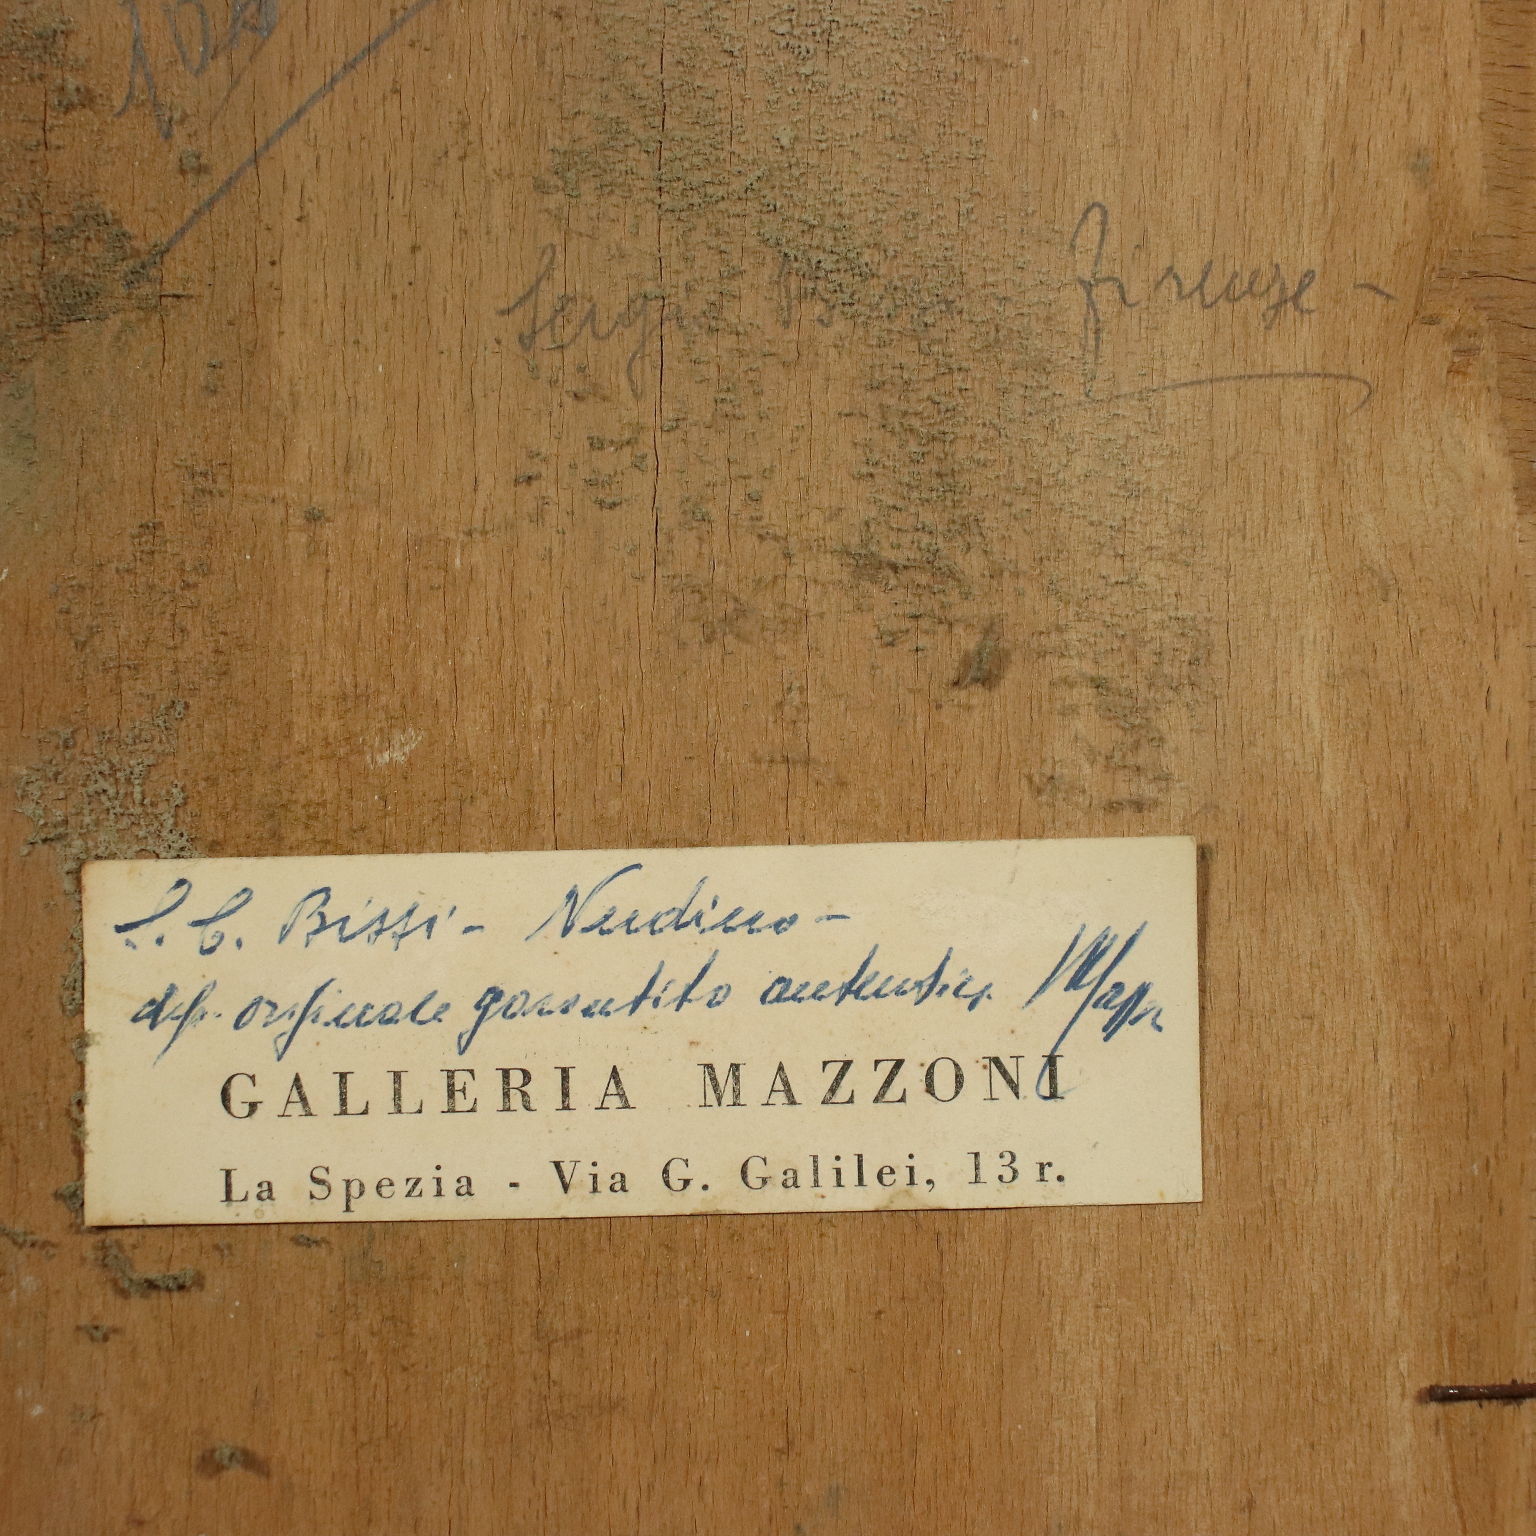 100
Sergio Firenze -
S. C. Bissi - Nudino -
dip. originale garantito autentico
GALLERIA MAZZONI
La Spezia - Via G. Galilei, 13 r.